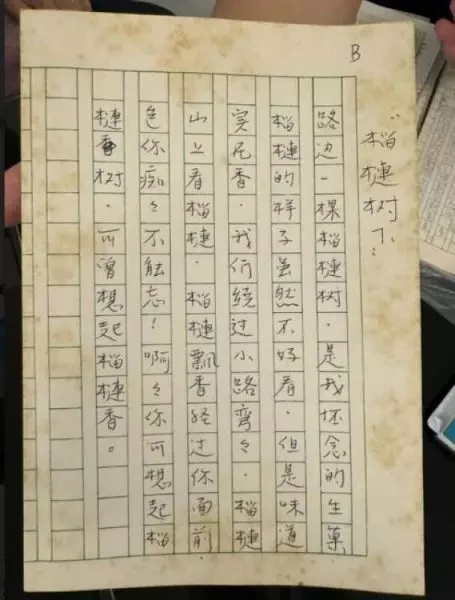 B
"榴槤树下"
路边一棵榴槤树.是我怀念的生菓
榴槤的样子虽然不好看.但是味道
实尼香.我们繞过小路弯々.榴槤
山上看榴槤.榴槤飘香经过你面前
色你痴々不能忘!啊々你可想起榴
槤树.可曾想起榴槤香。